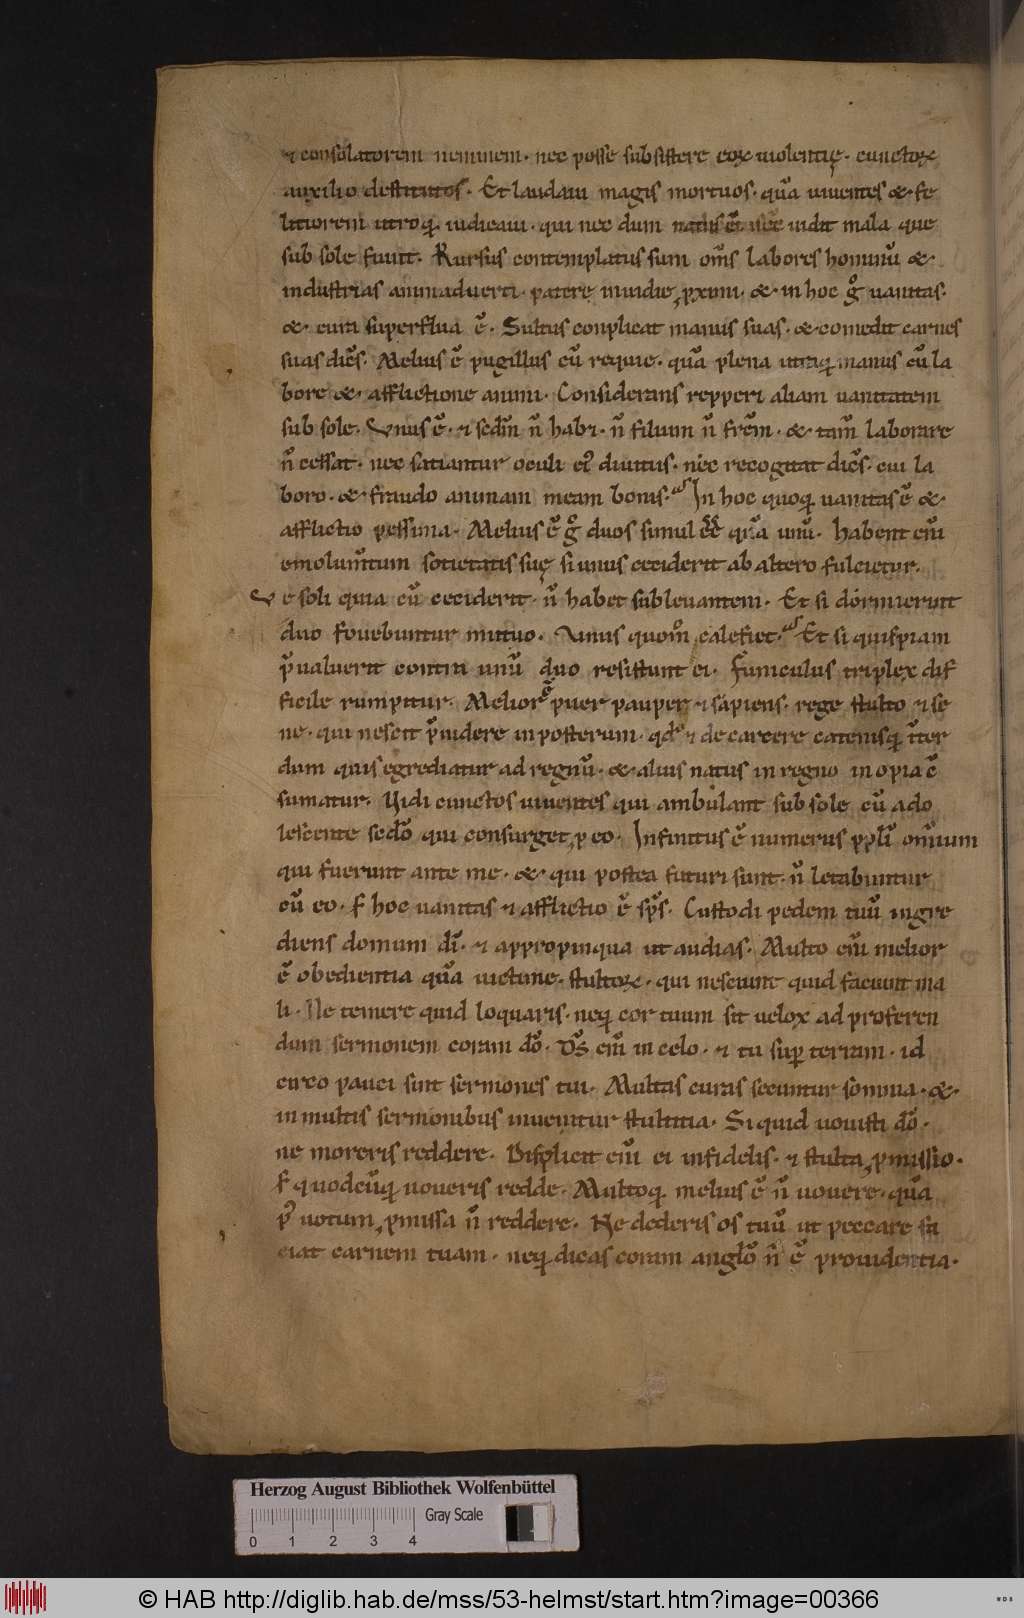 ⁊ consolatorem neminem. nec posse subsistere eoꝝ uiolentię. cunctoꝝ
auxilio destitutos. Et laudaui magis mortuos. quā uiuentes &. fe
litiorem utroq; iudicaui. qui nec dum natus ē. nec uidit mala que
sub sole fiunt. Rursus contemplatus sum om̄s labores hominū &.
industrias animaduerti. patere inuidie ꝓximi. &. in hoc gͦ uanitas.
&. cura superflua ē. Stultus conplicat manus suas. & comedit carnes
suas dic̄s. Melius ē pugillus cū requie. quā plena utraq; manus cū la
bore &. afflictione animi. Considerans repperi aliam uanitatem
sub sole. Vnus ē. ⁊ scdm̄ n̄ habꝫ. n̄ filium n̄ frēm. &. tam̄ laborare
n̄ cessat. nec satiantur oculi eiꝰ diuitiis. nec recogitat dic̄s. cui la
boro. &. fraudo animam meam bonis. In hoc quoq; uanitas ē &.
afflictio pessima. Melius ē gͦ duos simul ēē quā unū. habent enī
emolum̄tum societatis suę si unus ceciderit ab altero fulcietur.
Ve soli quia cū ceciderit. n̄ habet subleuantem. Et si dormierint
duo fouebuntur mutuo. Vnus quom̄ calefiet. Et si quispiam
p̄ualuerit contra unū duo resistunt ei. Funiculus triplex dif
ficile rumpitur. Melior ē puer pauper ⁊ sapiens. rege stulto ⁊ se
ne. qui nescit p̄uidere in posterum. qd̄ ⁊ de carcere catenisq; īter
dum quis egrediatur ad regnū. &. alius natus in regno inopia cō
sumatur. Uidi cunctos uiuentes qui ambulant sub sole cū ado
lescente scdō qui consurget ꝓ eo. Infinitus ē numerus ppl̄i omnium
qui fuerunt ante me. &. qui postea futuri sunt. n̄ letabuntur
cū eo. s; hoc uanitas ⁊ afflictio ē sp̄s. Custodi pedem tuū ingre
diens domum dī. ⁊ appropinqua ut audias. Multo enī melior
ē obedientia quā uictime. stultoꝝ. qui nesciunt quid faciunt ma
li. Ne temere quid loquaris. neq; cor tuum sit uelox ad proferen
dum sermonem coram dō. D̄s enī in celo. ⁊ tu sup̱ terram. id
circo pauci sint sermones tui. Multas curas secuntur somnia. &.
in multis sermonibus inuenitur stultitia. Si quid uouisti dō.
ne moreris reddere. Displicet enī ei infidelis. ⁊ stulta ꝓmissio.
s; quodcūq; uoueris redde. Multoq; melius ē n̄ uouere. quā
p̄ uotum ꝓmissa n̄ reddere. Ne dederis os tuū ut peccare fa
ciat carnem tuam. neq; dicas coram anglō n̄ ē prouidentia.
Herzog August Bibliothek Wolfenbüttel
Gray Scale
0 1 2 3 4
© HAB http://diglib.hab.de/mss/53-helmst/start.htm?image=00366